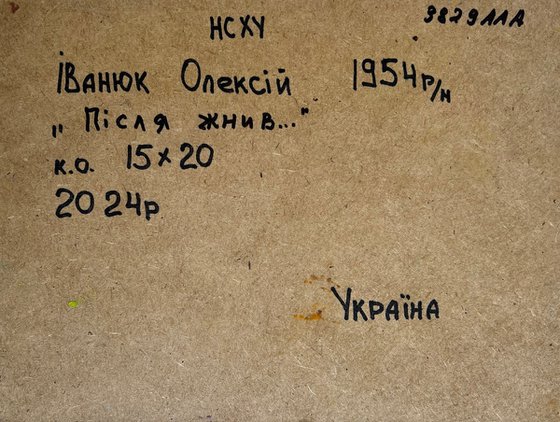 НСХУ
9829ААА
Іванюк Олексій 1954р/н
„Після жнив..."
к.о. 15×20
2024р
Україна